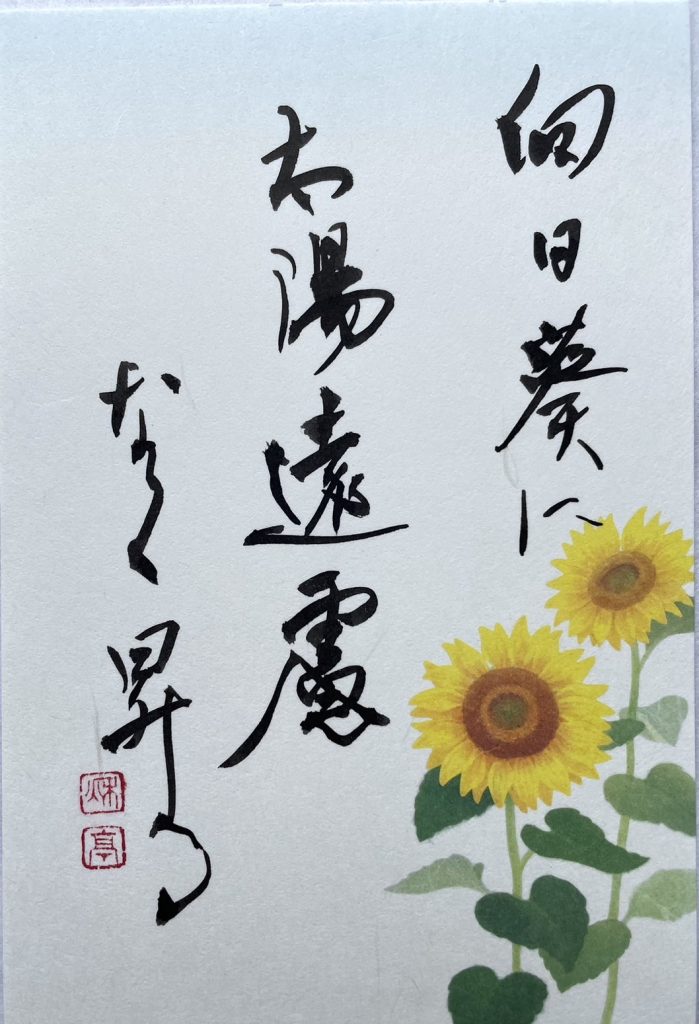 向日葵に
太陽遠慮
なく昇る
秌亭